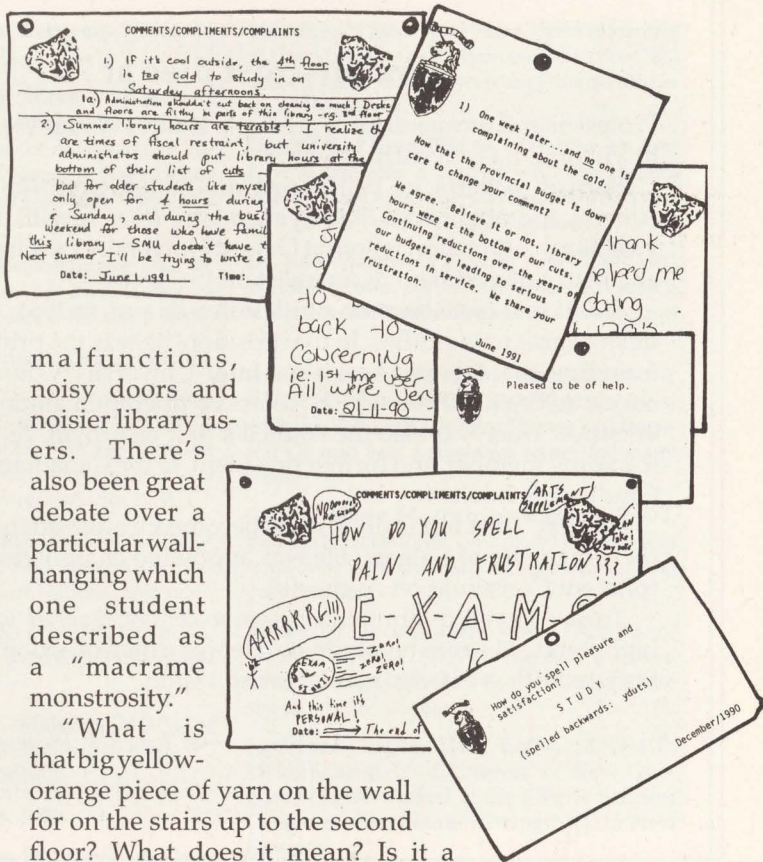 COMMENTS/COMPLIMENTS/COMPLAINTS
1.) If it's cool outside, the 4th floor
is too cold to study in on
Saturday afternoons.
1a:) Administration shouldn't cut back on cleaning so much! Desks
and floors are filthy in parts of this library - eg. 3rd floor
2.) Summer library hours are terrible! I realize th
are times of fiscal restraint, but university
administrators should put library hours at the
bottom of their list of cuts —
bad for older students like mysel
only open for 4 hours during
& Sunday, and during the busi
weekend for those who have famil
this library — SMU doesn't have t
Next summer I'll be trying to write a
Date: June 1, 1991 Time:
1) One week later...and no one is
complaining about the cold,
care to change your comment?
Now that the Provincial Budget is down
We agree. Believe it or not, library
hours were at the bottom of our cuts.
Continuing reductions over the years on
our budgets are leading to serious
reductions in service. We share your
frustration.
June 1991
to
back to
Concerning
ie: 1st time user
All were ver
Date: 21-11-90
thank
helped me
dating
Pleased to be of help.
COMMENTS/COMPLIMENTS/COMPLAINTS
ARTS
HOW DO YOU SPELL
PAIN AND FRUSTRATION???
E-X-A-M-S
AARRRRRG!!!
EXAM
TIME IS
ZERO!
ZERO!
ZERO!
And this time it's
PERSONAL!
Date: The end of
How do you spell pleasure and
satisfaction?
S T U D Y
(spelled backwards: yduts)
December/1990
malfunctions,
noisy doors and
noisier library us-
ers. There's
also been great
debate over a
particular wall-
hanging which
one student
described as
a "macrame
monstrosity."
"What is
that big yellow-
orange piece of yarn on the wall
for on the stairs up to the second
floor? What does it mean? Is it a